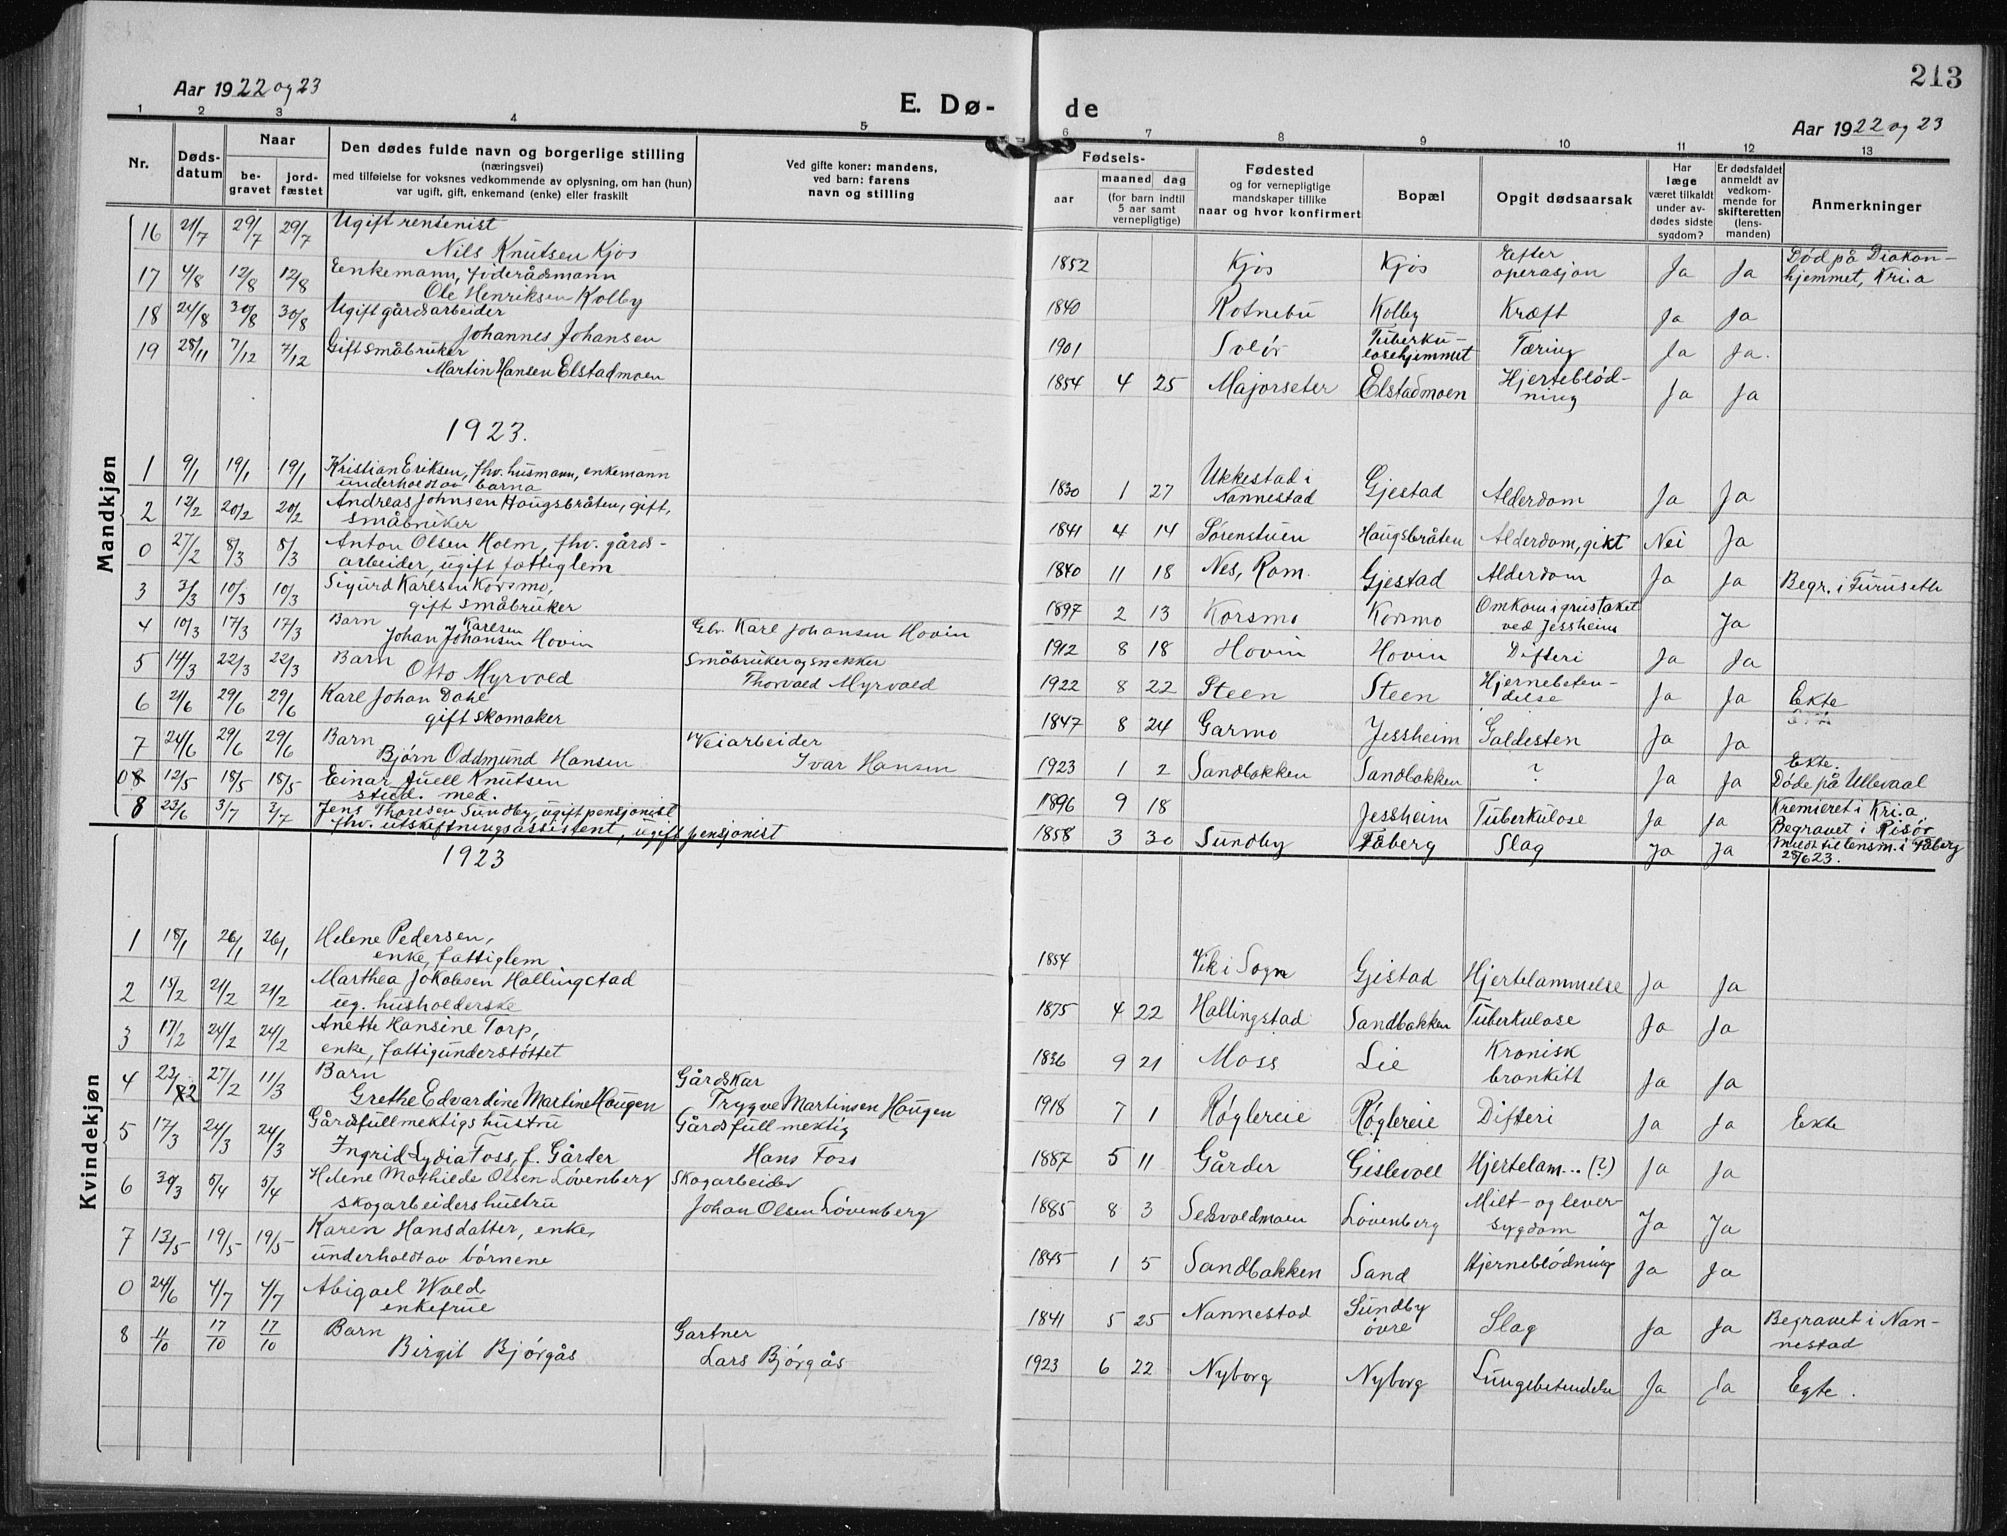 213
Aar 1922 og 23
E. Dø-
de
Aar 1922 og 23
1 2 3 4 5 6 7 8 9 10 11 12 13
Nr.
Døds-
datum
Naar
be-
gravet
jord-
fæstet
Den dødes fulde navn og borgerlige stilling
(næringsvei)
med tilføielse for voksnes vedkommende av oplysning, om han (hun)
var ugift, gift, enkemand (enke) eller fraskilt
Ved gifte koner: mandens,
ved barn: farens
navn og stilling
Fødsels-
aar
maaned dag
(for barn indtil
5 aar samt
vernepligtige)
Fødested
og for vernepligtige
mandskaper tillike
naar og hvor konfirmert
Bopæl
Opgit dødsaarsak
Har
læge
været tilkaldt
under av-
dødes sidste
sygdom?
Er dødsfaldet
anmeldt av
vedkom-
mende for
skifteretten
(lens-
manden)
Anmerkninger
Mandkjøn
16 21/7 29/7 29/7 Ugift rentenist
Nils Knutsen Kjos 1852 Kjos Kjos Efter operasjon Ja Ja Død på Diakon-
hjemmet, Kri.a
17 4/8 12/8 12/8 Eenkemann, føderådsmann
Ole Henriksen Kolby 1840 Rotnebu Kolby Kræft Ja Ja
18 24/8 30/8 30/8 Ugift gårdsarbeider
Johannes Johansen 1901 Solør Tuberku-
losehjemmet Tæring Ja Ja.
19 28/11 7/12 7/12 Gift småbruker
Martin Hansen Elstadmoen 1854 4 25 Majorseter Elstadmoen Hjerteblød-
ning Ja Ja
1923.
1 9/1 19/1 19/1 Kristian Eriksen, fhv. husmann, enkemann
underholdt av barna 1830 1 27 Ukkestad i
Nannestad Gjestad Alderdom Ja Ja
2 12/2 20/2 20/2 Andreas Johnsen Haugsbråten, gift,
småbruker 1841 4 14 Sørenstuen Haugsbråten Alderdom, gikt Nei Ja
0 27/2 8/3 8/3 Anton Olsen Holm, fhv. gårds-
arbeider, ugift fattiglem 1840 11 18 Nes, Rom. Gjestad Alderdom Ja Ja Begr. i Furuseth
3 3/3 10/3 10/3 Sigurd Karlsen Korsmo,
gift småbruker 1897 2 13 Korsmo Korsmo Omkom i grustaket
ved Jessheim Ja
4 10/3 17/3 17/3 Barn
Karlsen
Johan Johansen Hovin Gbr. Karl Johansen Hovin 1912 8 18 Hovin Hovin Difteri Ja Ja
5 14/3 22/3 22/3 Barn
Otto Myrvold Småbruker og snekker
Thorvald Myrvald 1922 8 22 Steen Steen Hjernebeten-
delse Ja Ja Ekte
6 21/6 29/6 29/6 Karl Johan Dahl
gift skomaker 1847 8 24 Garmo Jessheim Galdesten Ja Ja
7 24/6 29/6 29/6 Barn
Bjørn Oddmund Hansen Veiarbeider
Ivar Hansen 1923 1 2 Sandbakken Sandbakken ? Ja Ja Ekte.
0 8 12/5 18/5 18/5 Einar Juell Knutsen
stud. med. 1896 9 18 Jessheim Tuberkulose Ja Ja Døde på Ullevaal
Kremieret i Kri.a,
Begravet i Risør
8 23/6 3/7 3/7 Jens Thoresen Sundby, ugift pensjonist
fhv. utskiftningsassistent, ugift pensjonist 1858 3 30 Sundby Fåberg Slag Ja Ja Meldt til lensm. i Fåberg
28/6 23.
Kvindekjøn
1923
1 18/1 26/1 26/1 Helene Pedersen,
enke, fattiglem 1854 Vik i Sogn Gjestad Hjertelammelse Ja Ja
2 15/2 21/2 21/2 Marthea Jakobsen Hallingstad
ug. husholderske 1875 4 22 Hallingstad Sandbakken Tuberkulose Ja Ja
3 17/12 24/2 24/2 Anette Hansine Torp,
enke, fattigunderstøttet 1836 9 21 Moss Lie Kronisk
bronkitt Ja Ja
4 27/2 11/3 Barn
Grethe Edvardine Martine Haugen Gårdskar
Trygve Martinsen Haugen 1918 7 1 Røglereie Røglereie Difteri Ja Ja Ekte
5 17/3 24/3 24/3 Gårdsfullmektigs hustru
Ingrid Lydia Foss, f. Gårder Gårdsfullmektig
Hans Foss 1887 5 11 Gårder Gislevoll Hjertelam... (?) Ja Ja
6 30/3 5/4 5/4 Helene Mathilde Olsen Løvenberg
skogarbeiders hustru Skogarbeider
Johan Olsen Løvenberg 1885 8 3 Løvenberg Milt- og lever-
sygdom Ja Ja
7 13/5 19/5 19/5 Karen Hansdatter, enke,
underholdt av børnene 1845 1 5 Sandbakken Sand Hjerneblødning Ja Ja
0 24/6 4/7 4/7 Abigael Wold
enkefrue 1841 5 25 Nannestad Sundby
øvre Slag Ja Ja Begravet i Nan-
nestad
8 11/10 17/10 17/10 Barn
Birgit Bjørgås Gartner
Lars Bjørgås 1923 6 22 Nyborg Nyborg Lungebetendelse Ja Ja Egte.